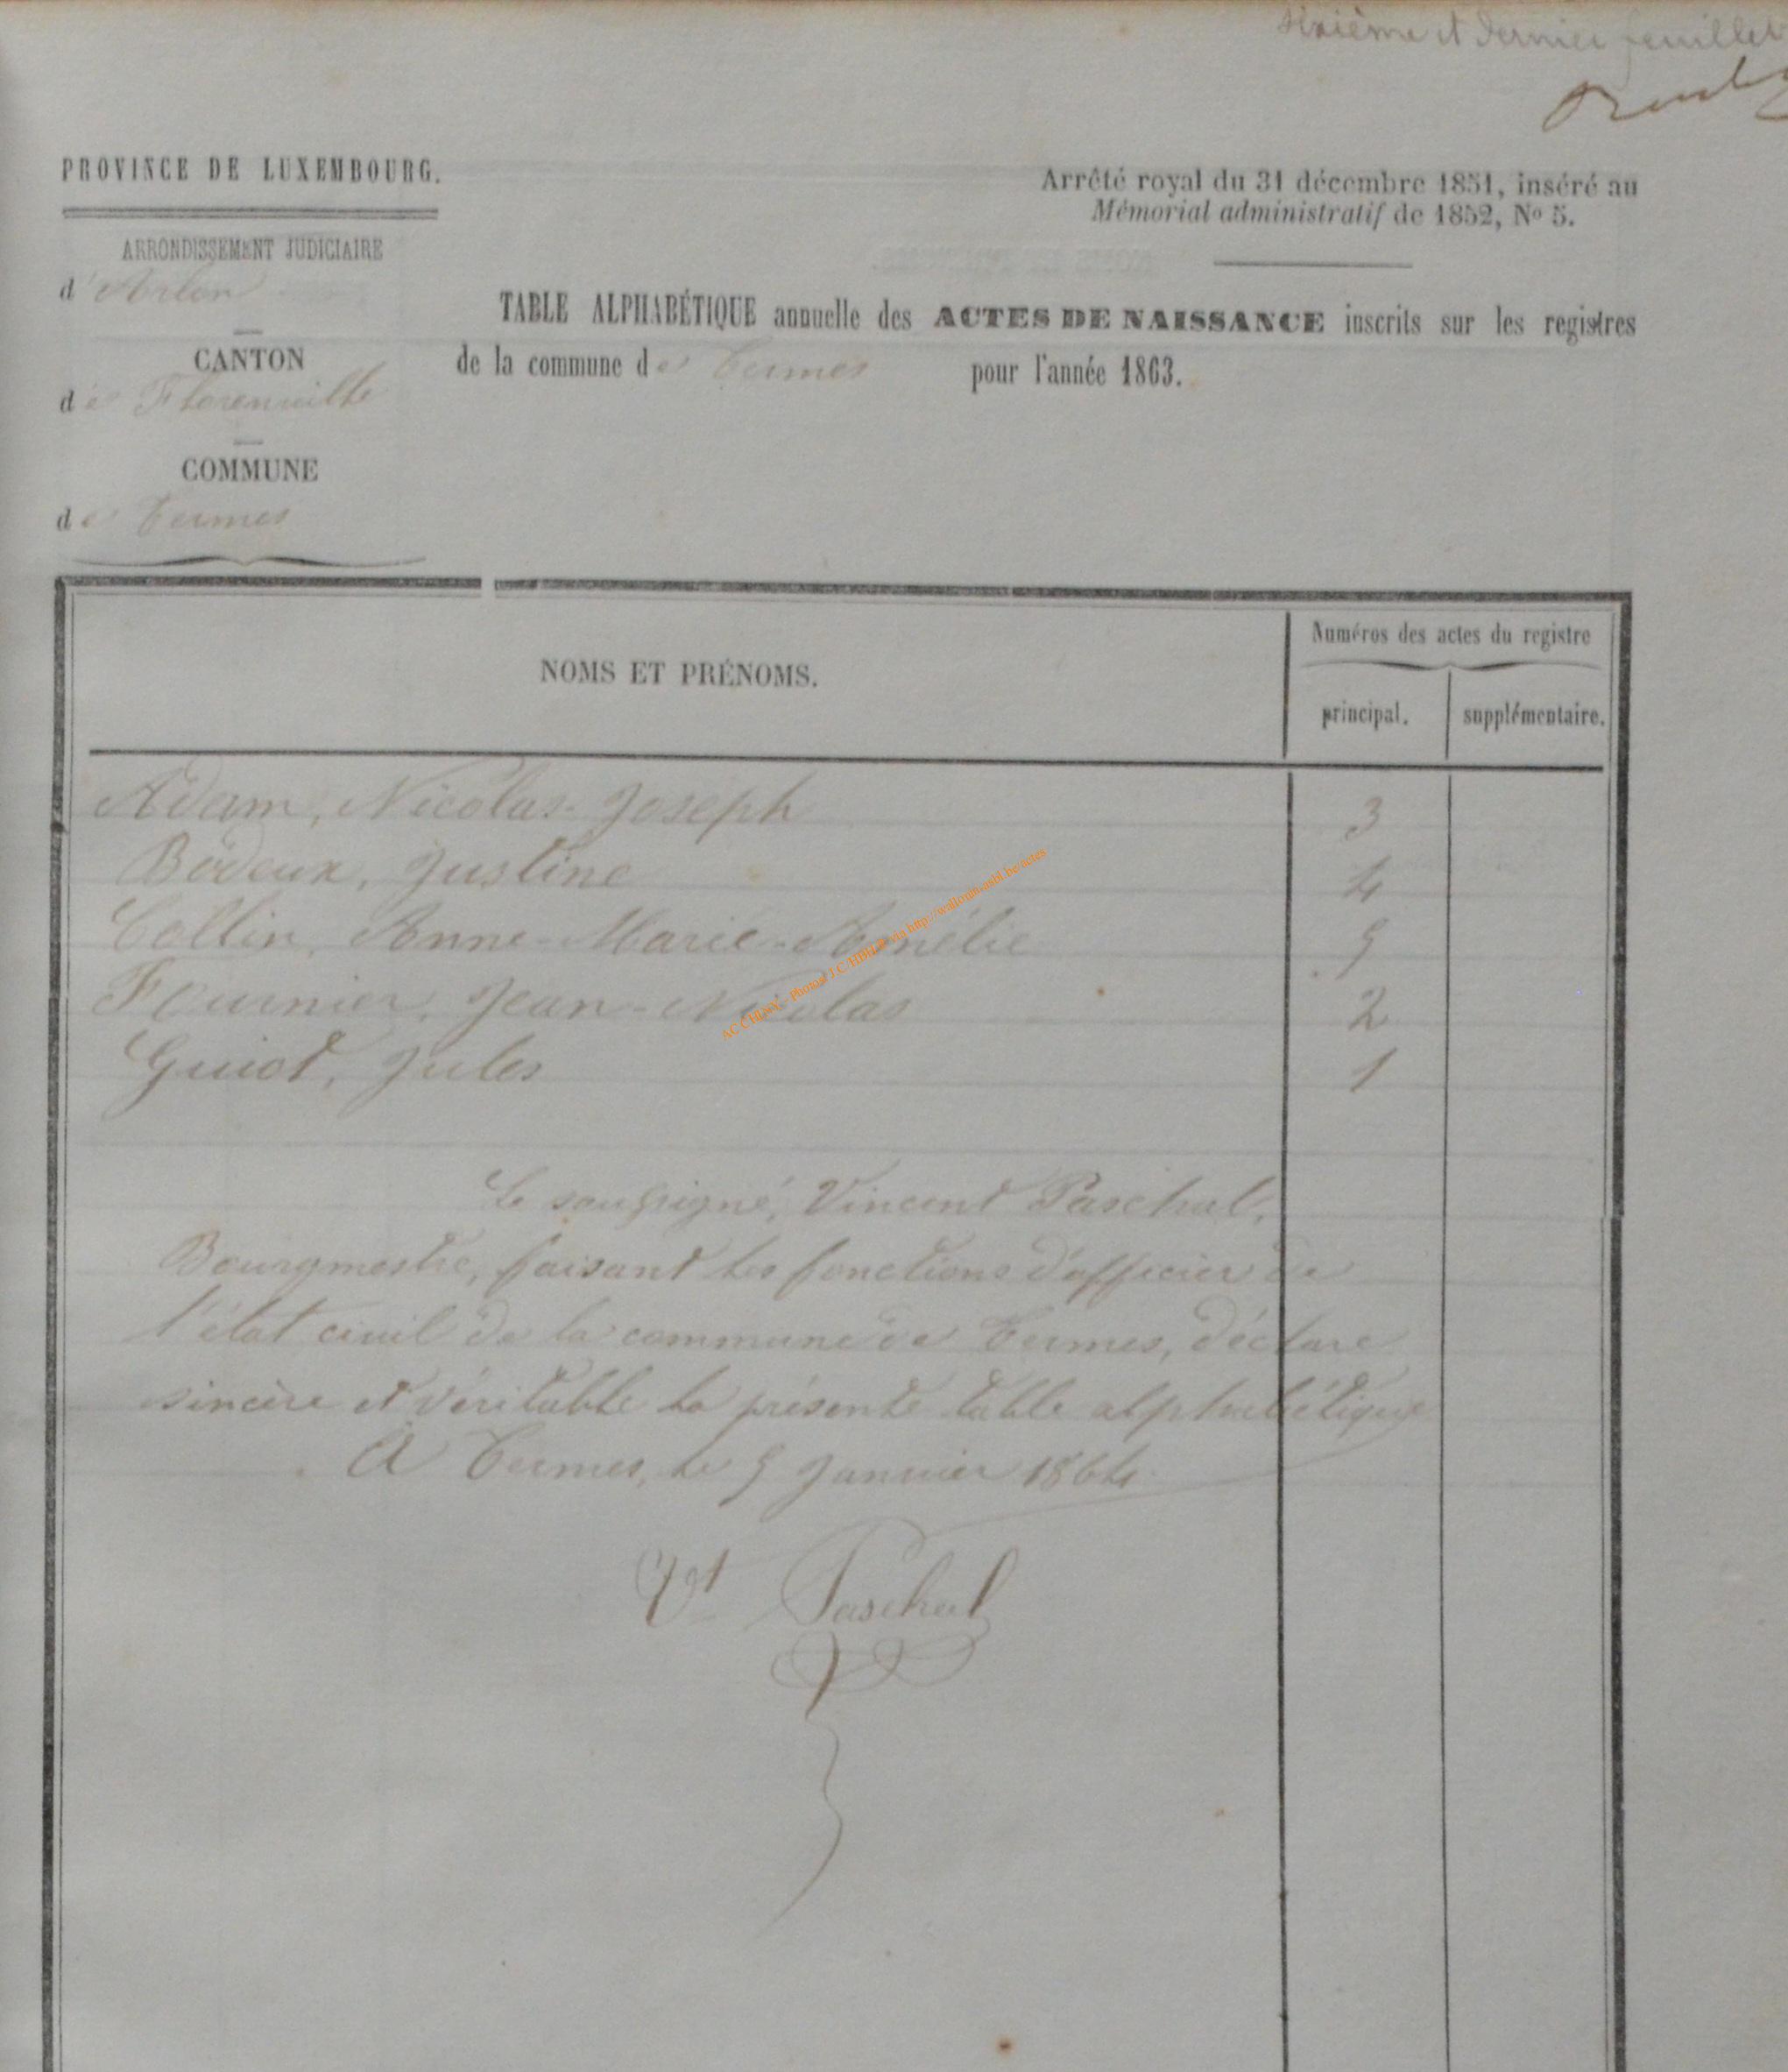 Sixième et dernier feuillet
PROVINCE DE LUXEMBOURG.
ARRONDISSEMENT JUDICIAIRE
d'Arlon
CANTON
de Florenville
COMMUNE
de Termes
Arrêté royal du 31 décembre 1851, inséré au
Mémorial administratif de 1852, No 5.
TABLE ALPHABÉTIQUE annuelle des ACTES DE NAISSANCE inscrits sur les registres
de la commune de Termes pour l'année 1863.
NOMS ET PRÉNOMS.
Numéros des actes du registre
principal. supplémentaire.
Adam, Nicolas-Joseph 3
Bodeux, Justine 4
Collin, Anne-Marie-Amélie 5
Fournier, Jean-Nicolas 2
Guiot, Jules 1
Le soussigné, Vincent Paschal,
Bourgmestre, faisant les fonctions d'officier de
l'état civil de la commune de Termes, déclare
sincère et véritable la présente table alphabétique
A Termes, le 5 Janvier 1864
Vt Paschal